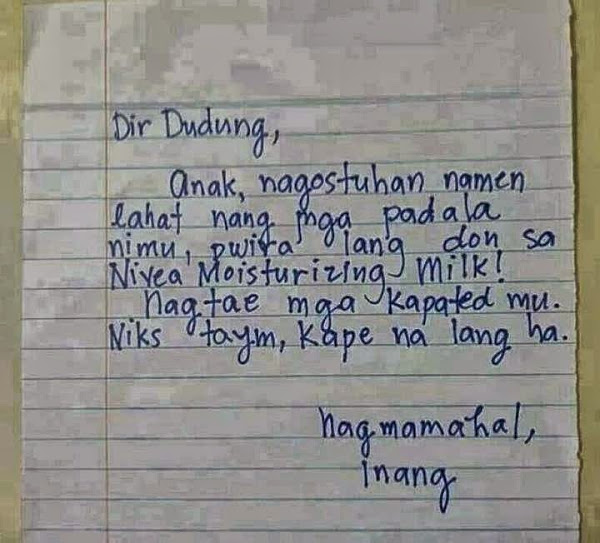 Dir Dudung,
Anak, nagostuhan namen
lahat nang mga padala
nimu, pwira lang don sa
Nivea Moisturizing Milk!
Nagtae mga kapated mu.
Niks taym, kape na lang ha.
Nagmamahal,
Inang